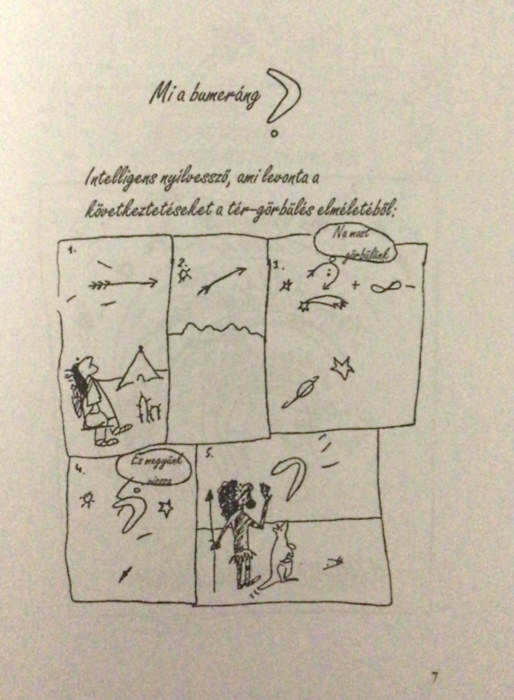 Mi a bumeráng
Intelligens nyílvessző, ami levonta a
következtetéseket a tér-görbülés elméletéből:
1.
2.
3.
Na most
görbülünk
4.
És megyünk
vissza
5.
7